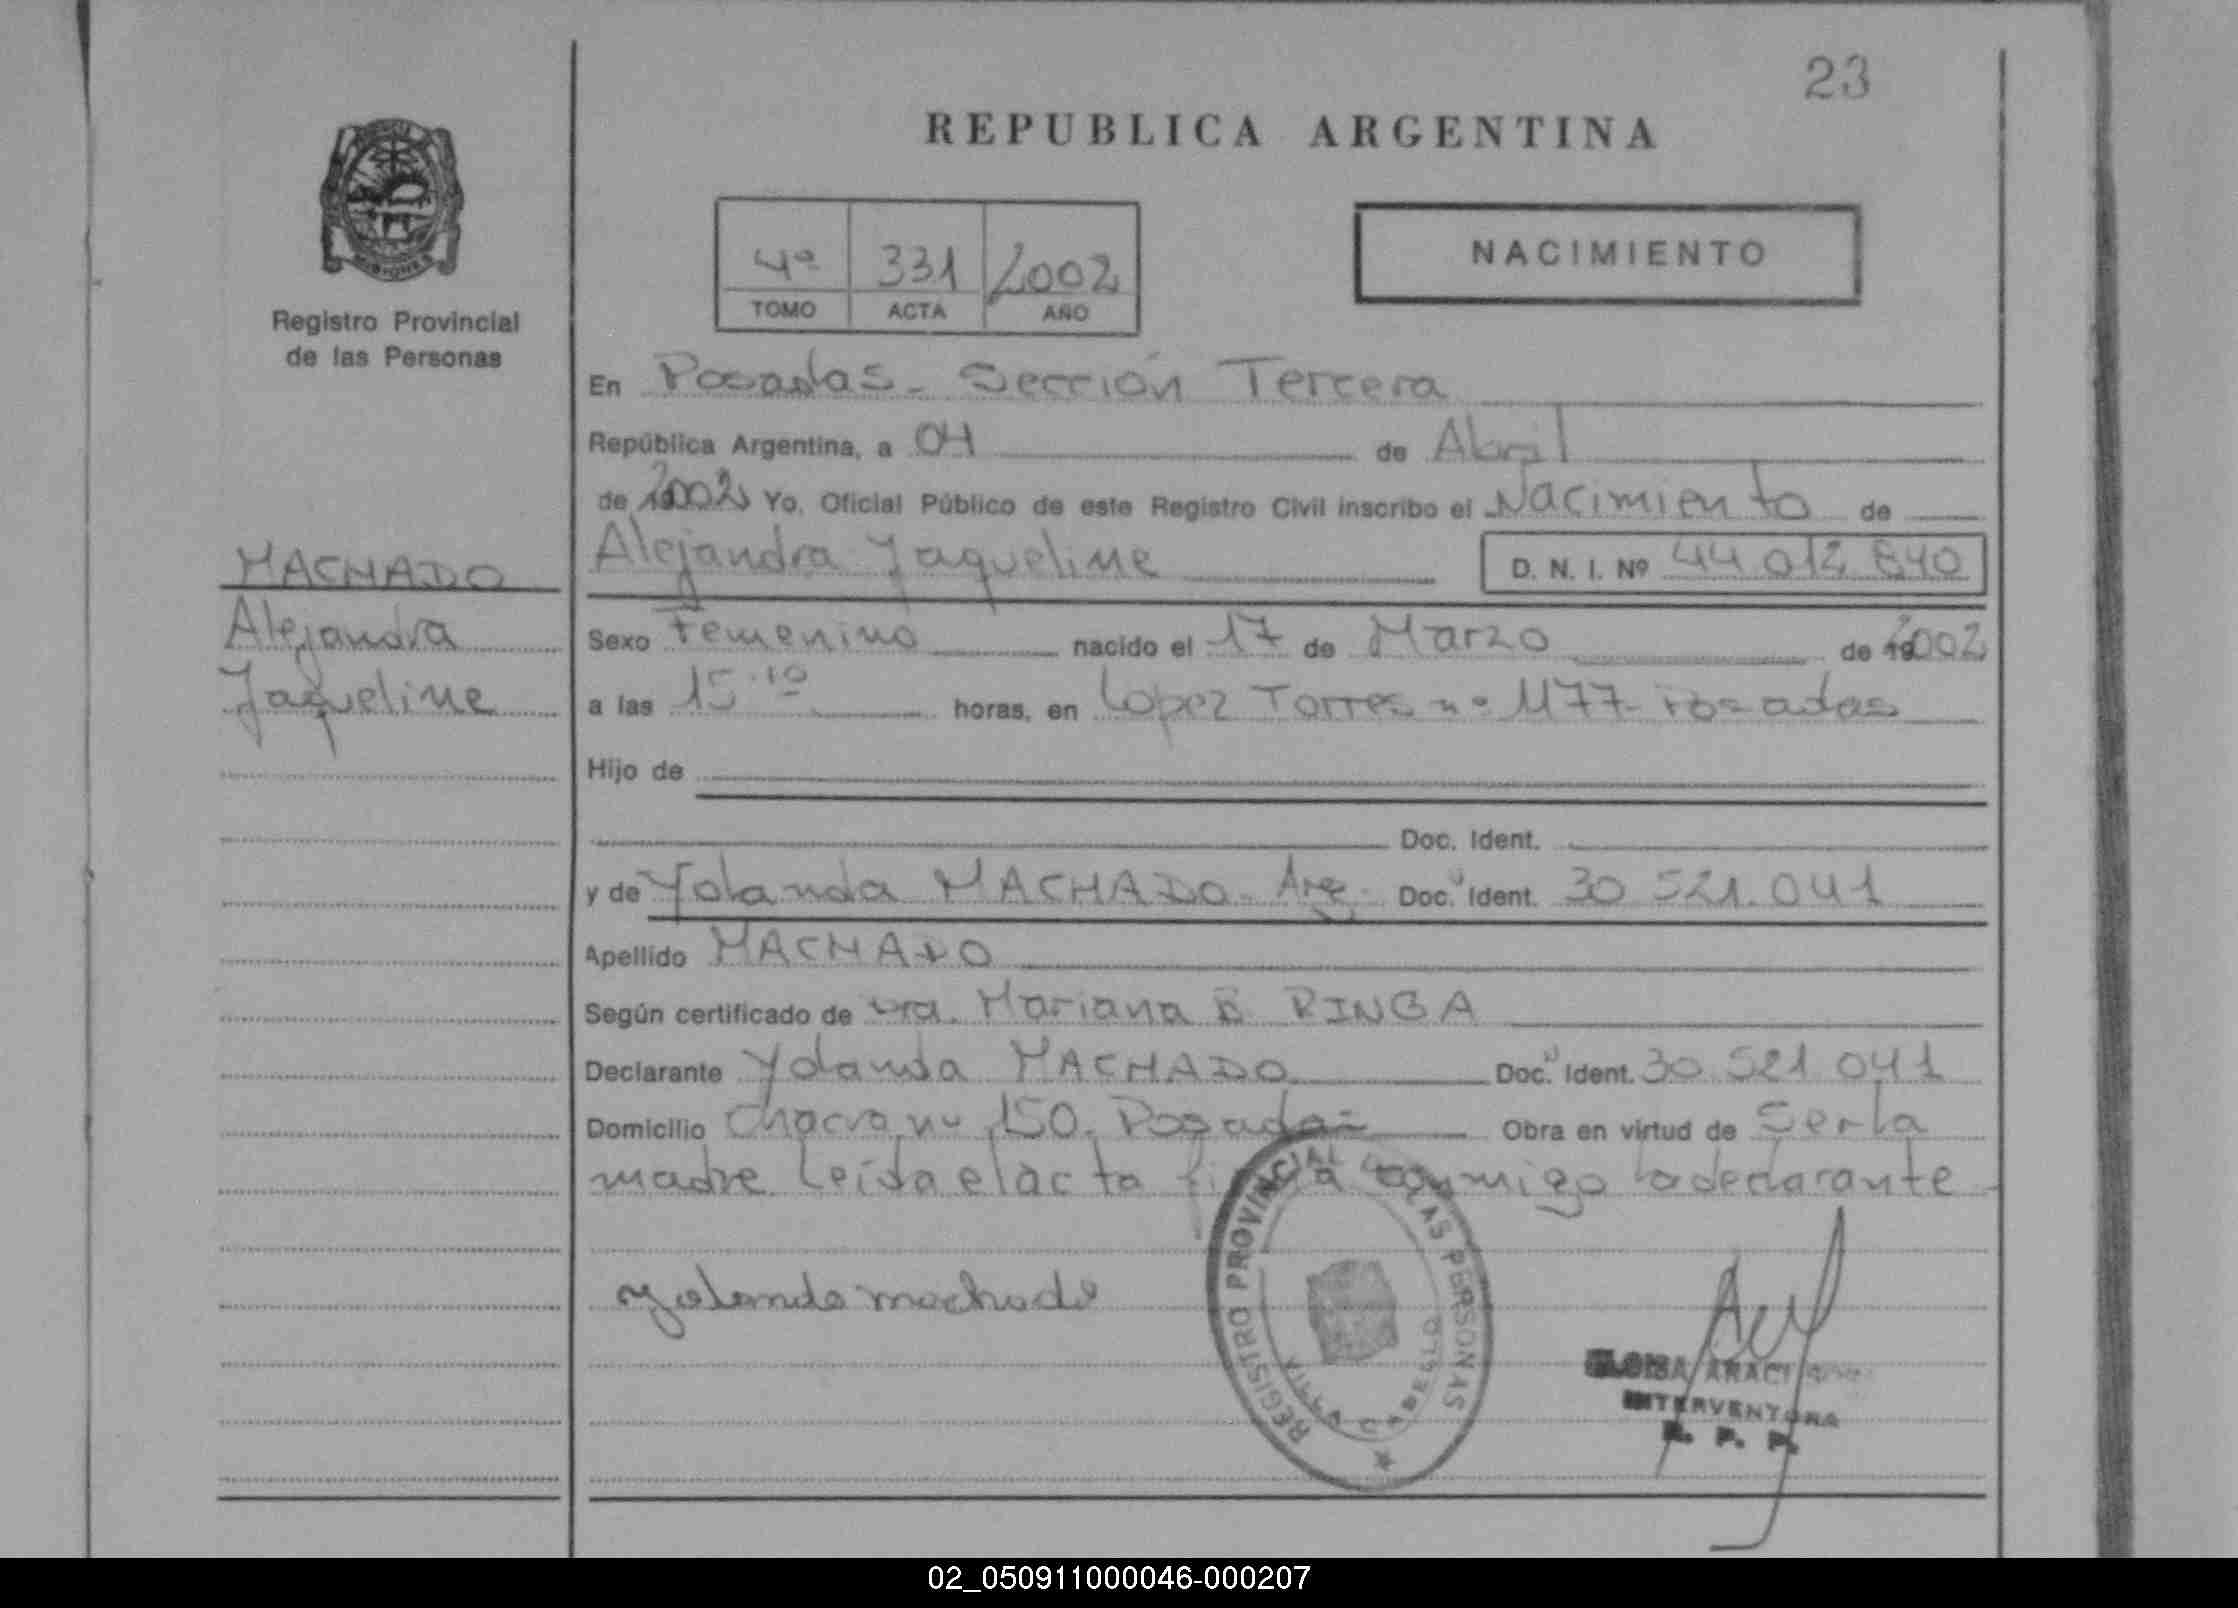 23
REPUBLICA ARGENTINA
MISIONES
Registro Provincial
de las Personas
4º 331 2002
TOMO ACTA AÑO
NACIMIENTO
En Posadas - Sección Tercera
República Argentina, a 04 de Abril
de 2002 Yo, Oficial Público de este Registro Civil inscribo el Nacimiento de
MACHADO
Alejandra
Jaqueline
Alejandra Jaqueline D. N. I. Nº 44 012 840
Sexo Femenino nacido el 17 de Marzo de 2002
a las 15.10 horas, en Lopez Torres nº 1177 - Posadas
Hijo de
Doc. Ident.
y de Yolanda MACHADO - Arg. Doc. Ident. 30 521.041
Apellido MACHADO
Según certificado de Dra. Mariana B RINGA
Declarante Yolanda MACHADO Doc. Ident. 30 521 041
Domicilio Chacra nº 150. Posadas Obra en virtud de Ser la
madre Leída el acta firma conmigo la declarante
Yolanda machado
REGISTRO PROVINCIAL DE LAS PERSONAS
VILLA CABELLO
ARACI
INTERVENTORA
R. P. P.
02_050911000046-000207